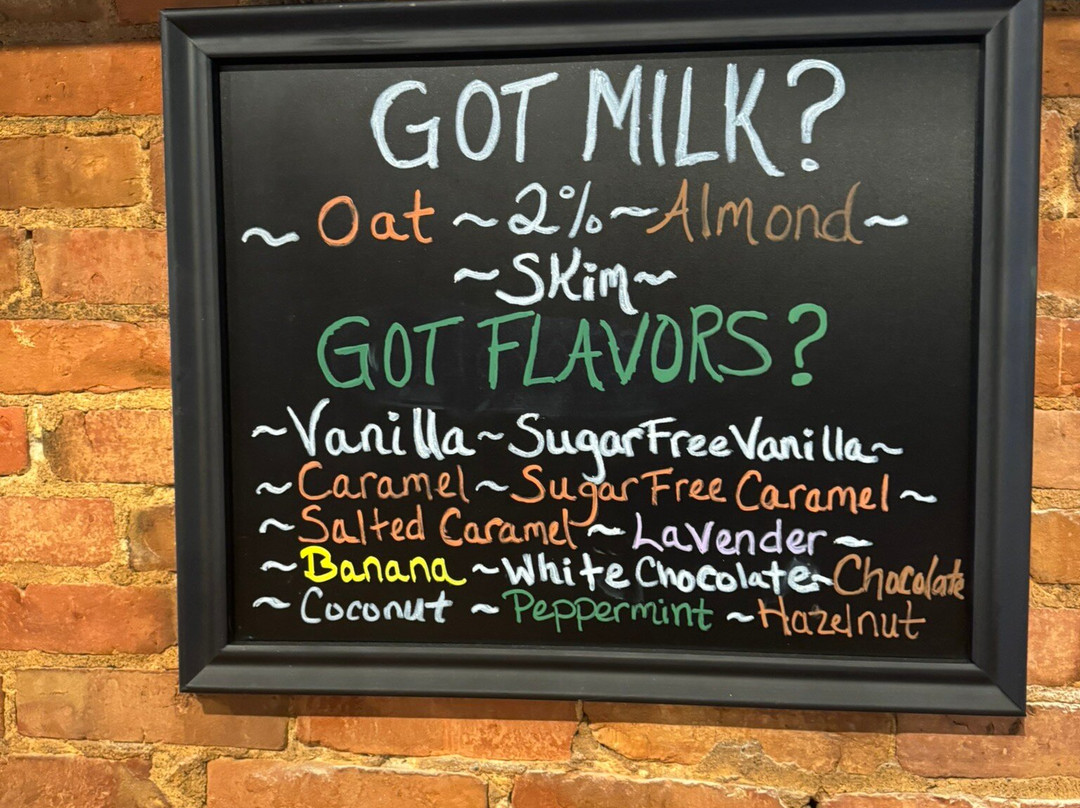 GOT MILK?
~ Oat ~ 2% ~ Almond ~
~ Skim ~
GOT FLAVORS?
~ Vanilla ~ Sugar Free Vanilla ~
~ Caramel ~ Sugar Free Caramel ~
~ Salted Caramel ~ Lavender ~
~ Banana ~ White Chocolate ~ Chocolate
~ Coconut ~ Peppermint ~ Hazelnut